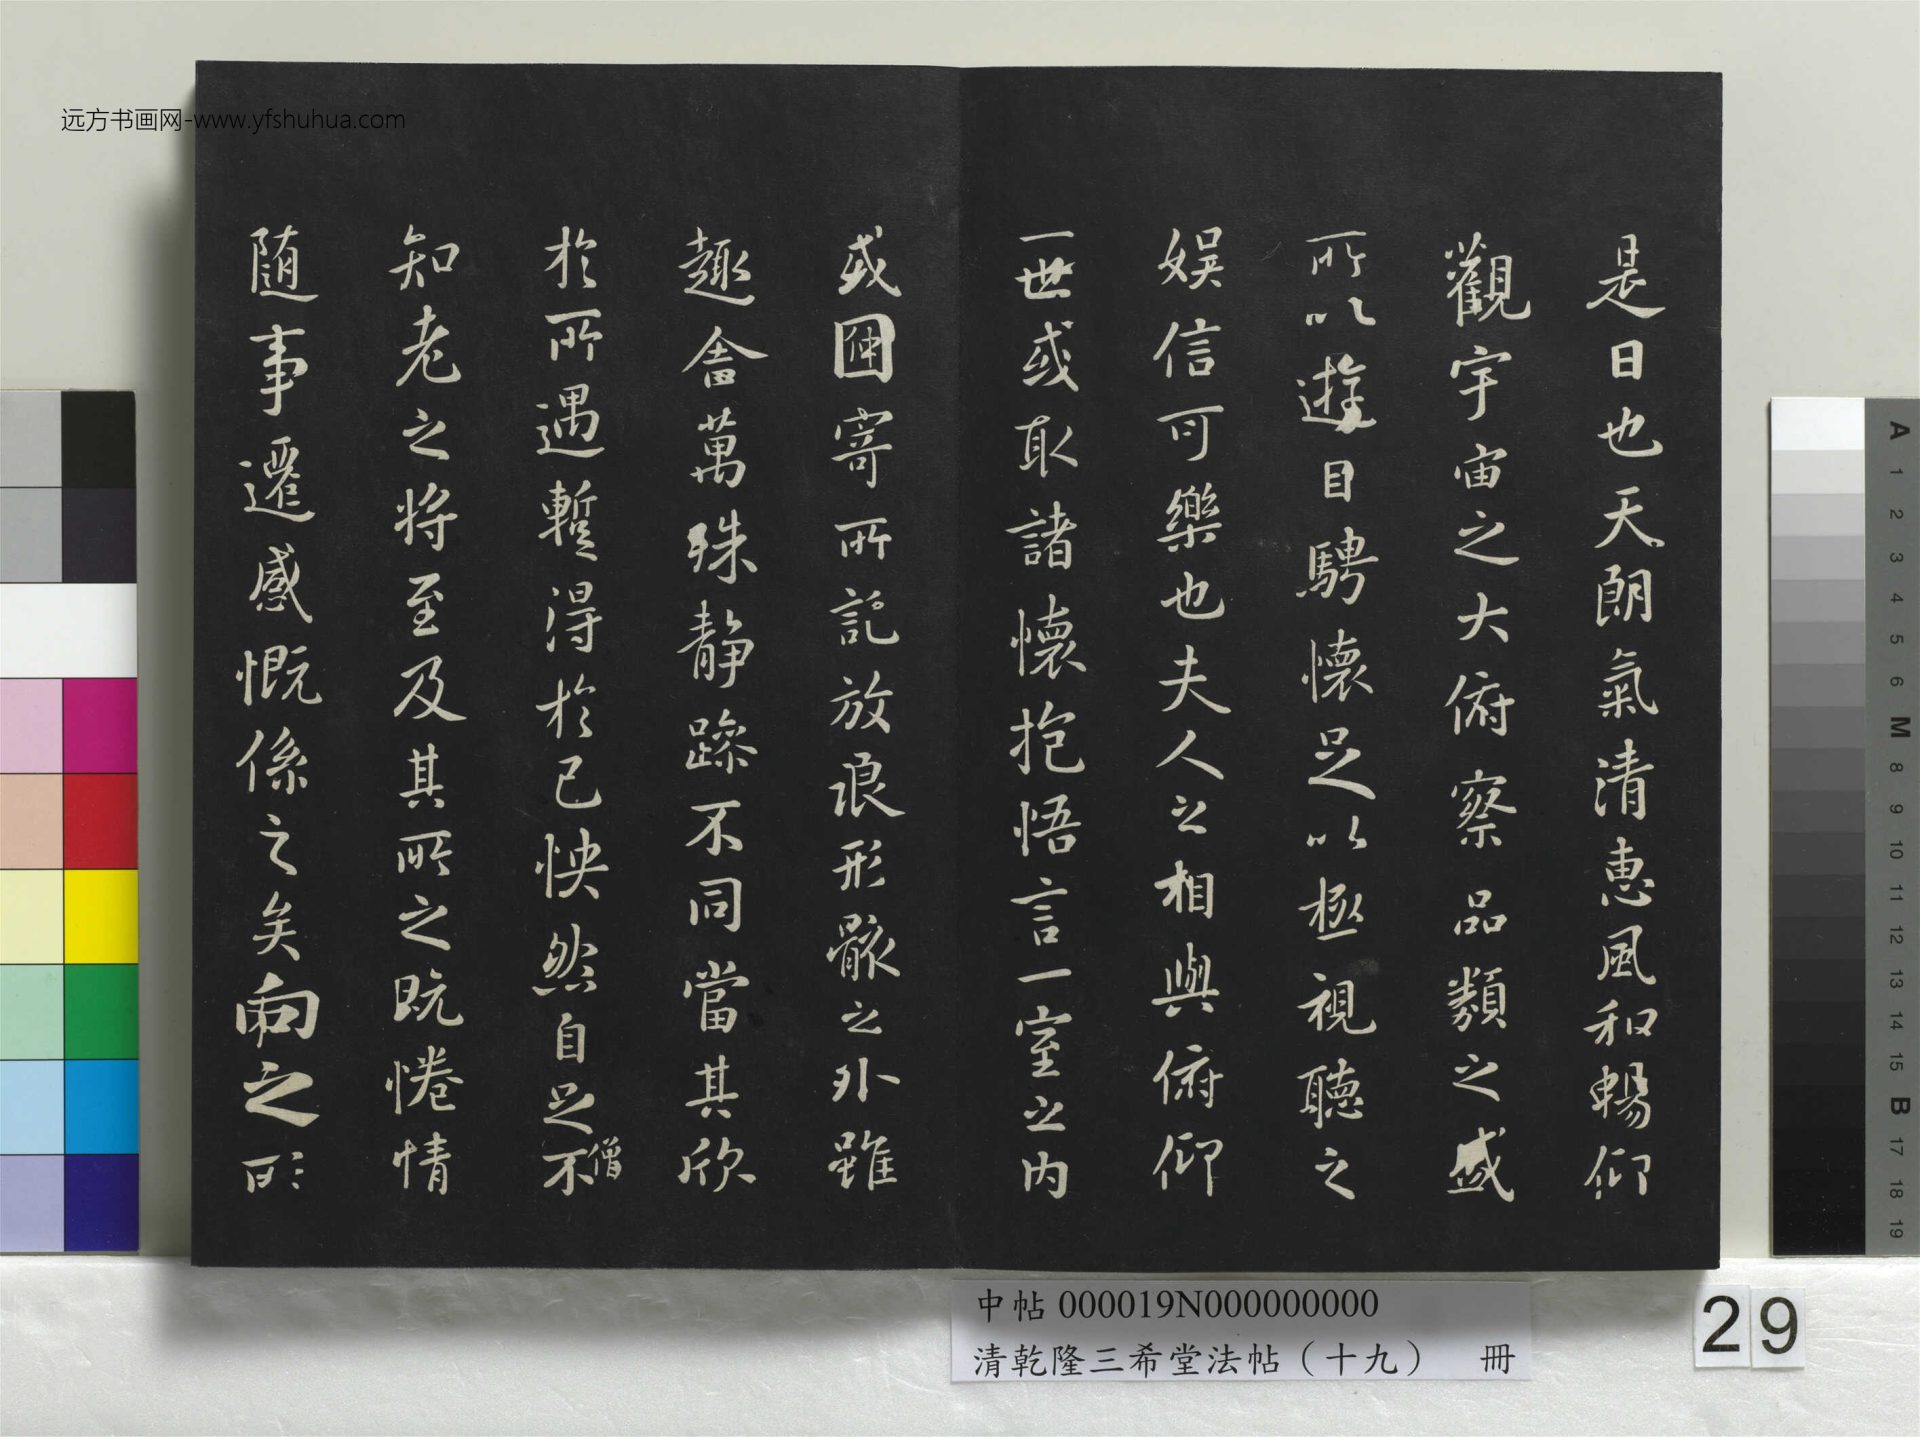 远方书画网-www.yfshuhua.com
是日也天朗氣清惠風和暢仰
觀宇宙之大俯察品類之盛
所以遊目騁懷足以極視聽之
娛信可樂也夫人之相與俯仰
一世或取諸懷抱悟言一室之内
或因寄所託放浪形骸之外雖
趣舍萬殊静躁不同當其欣
於所遇蹔得於己怏然自足不
僧
知老之将至及其所之既惓情
随事遷感慨係之矣向之所
中帖 000019N000000000
清乾隆三希堂法帖（十九） 冊
29
A 1 2 3 4 5 6 M 8 9 10 11 12 13 14 15 B 17 18 19